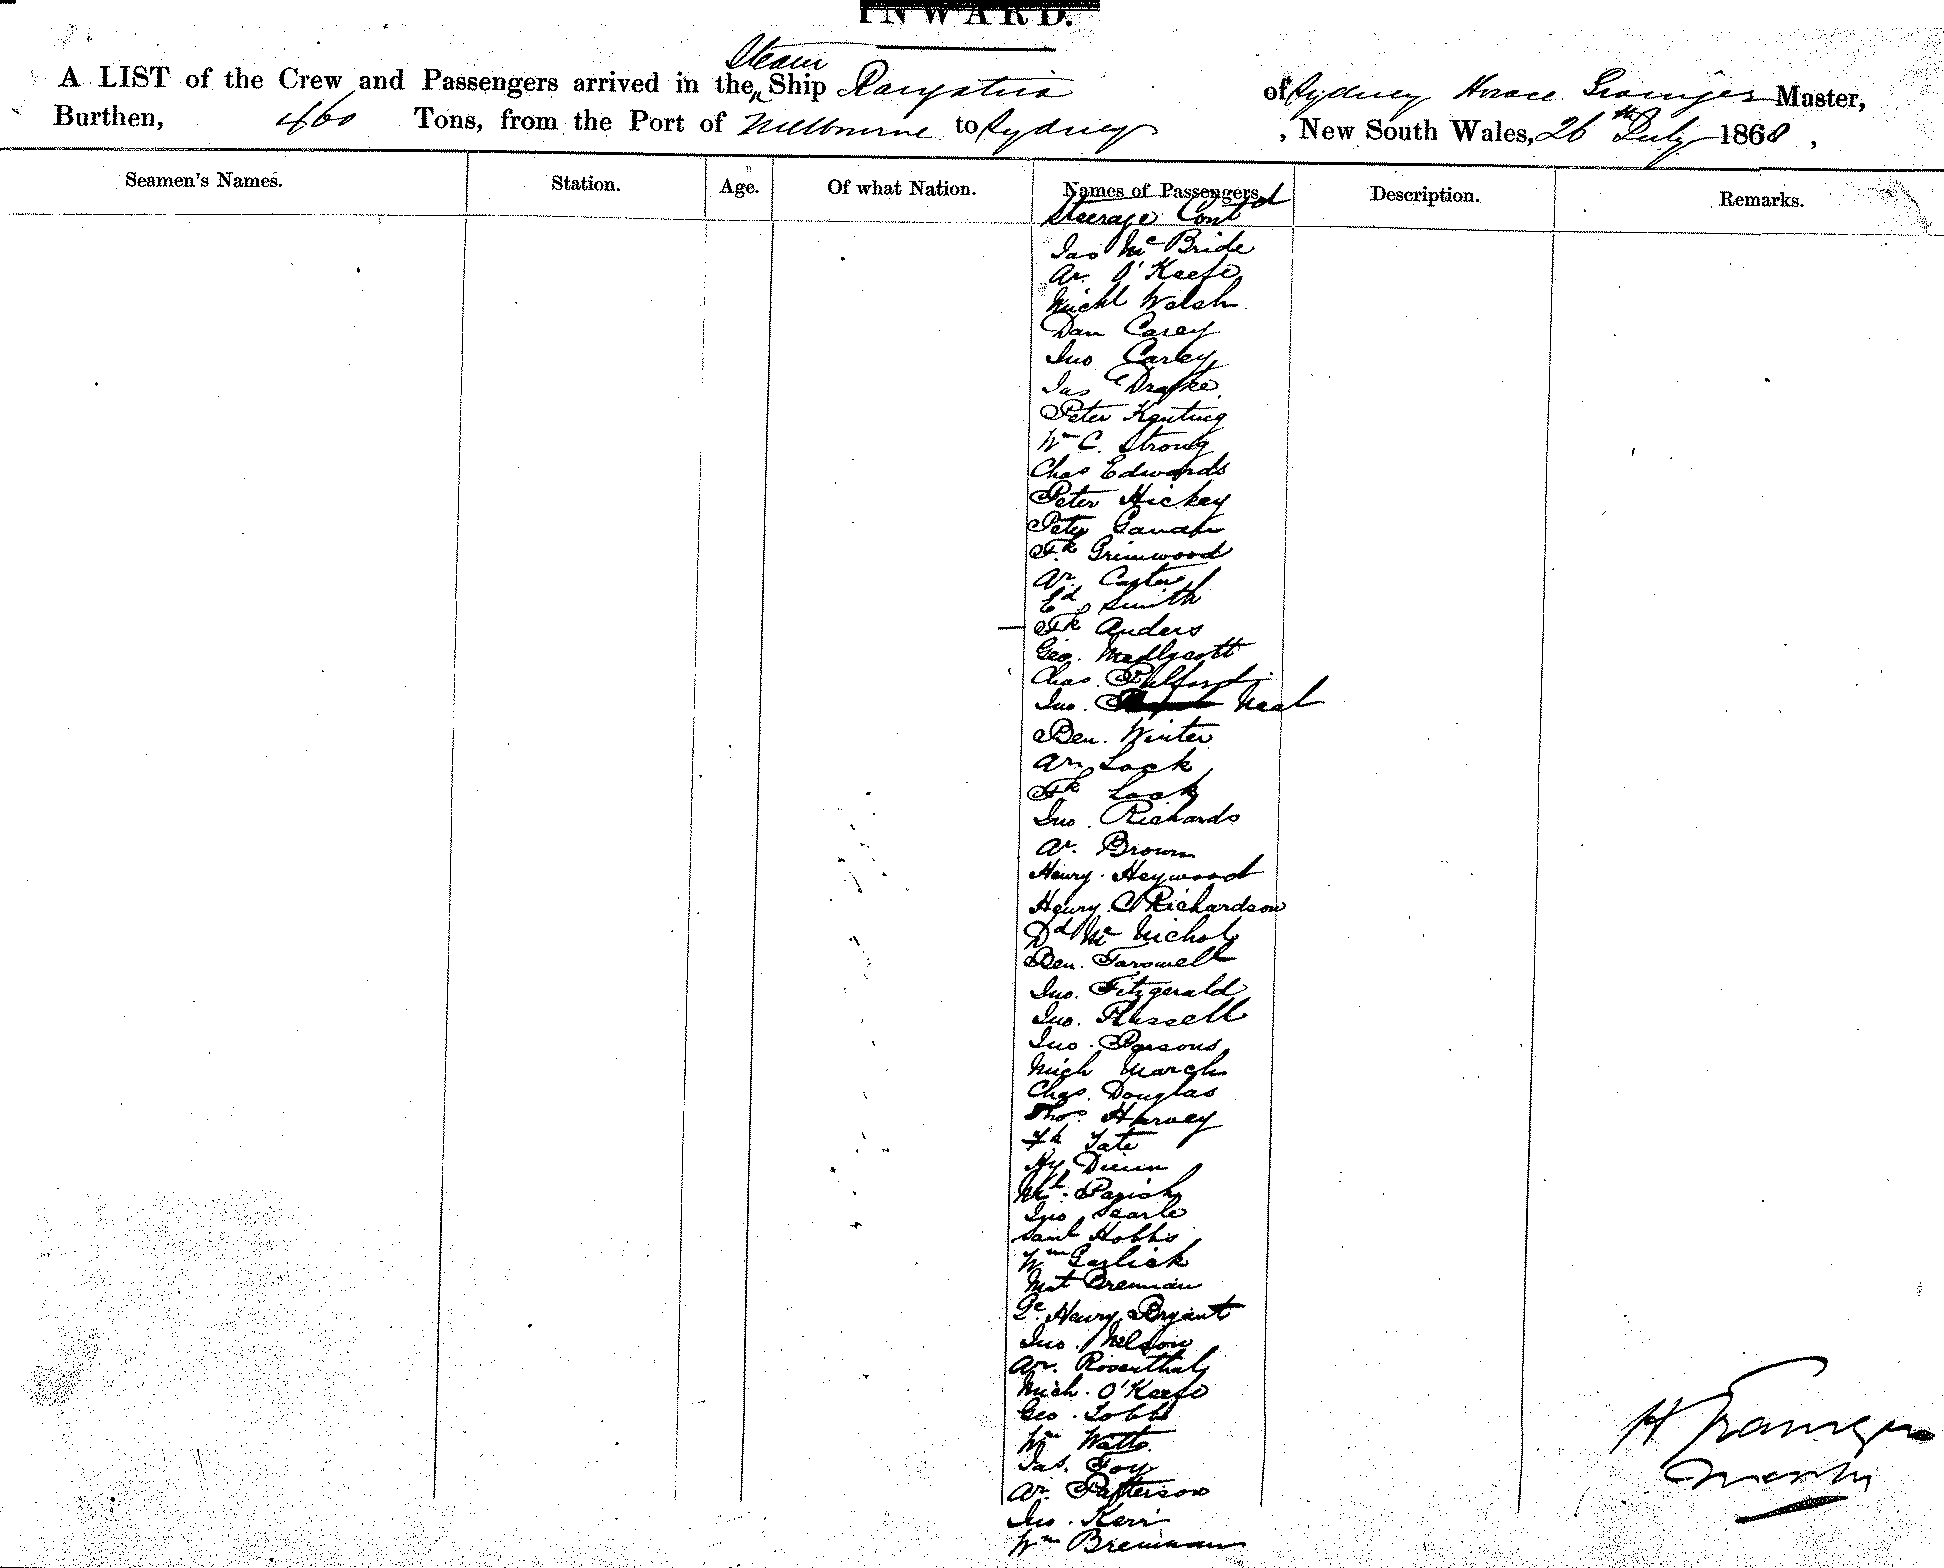 INWARD.
A LIST of the Crew and Passengers arrived in the Steam Ship of Sydney Horace Grainger Master,
Burthen, 460 Tons, from the Port of Melbourne to Sydney , New South Wales, 26th July 1860 ,
Seamen's Names. Station. Age. Of what Nation. Names of Passengers. Description. Remarks.
Steerage Contd
Jas Mc Bride
Ar. O'Keefe
Michl Walsh
Dan Carey
Jno Carley
Jas Drake
Peter Keating
Wm C. Strong
Chas Edwards
Peter Hickey
Peter
Fk Grimwood
Ar. Carter
Ed Smith
Fk Anders
Geo. Medlycott
Chas. Pulford
Jno. Neal
Ben. Winter
Ar. Lock
Fk Lock
Jno. Richards
Ar. Brown
Henry Heywood
Henry C Richardson
Dd Mc Nichol
Ben. Farswell
Jno. Fitzgerald
Jno. Russell
Jno. Parsons
Mich March
Chas. Douglas
Thos. Harvey
Fk Tate
Hy Dunn
Parish
Jno Searle
Saml Hobbs
Wm Garlick
Mat Brennan
Ge Henry Bryant
Jno. Nelson
Ar. Rosenthal
Mich. O'Keefe
Geo. Tobbs
Wm Watts
Jas. Foy
Ar. Patterson
Jno. Kerr
Wm Brennan
H Grainger
Master